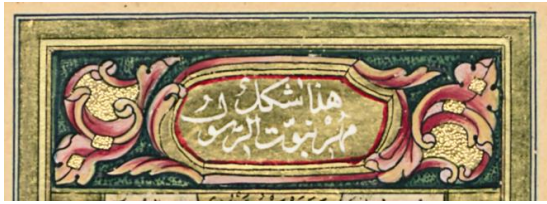 هذا شكل
مهر نبوت الرسول